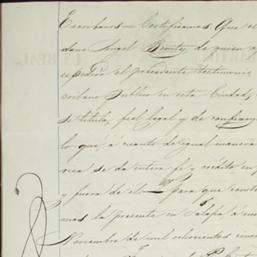 Escribanos Certificamos: Que el
dano Angel Benitez de quien a
espedido el precedente testimonio
cribano Publico en esta Ciudad,
se titula, fiel legal y de confianz
lo que, á cuanto de igual manera
visa se da entera fe y crédito en j
y fuera de él. Y para que conste
mos la presente en Jalapa á nue
Noviembre de mil ochocientos cincu